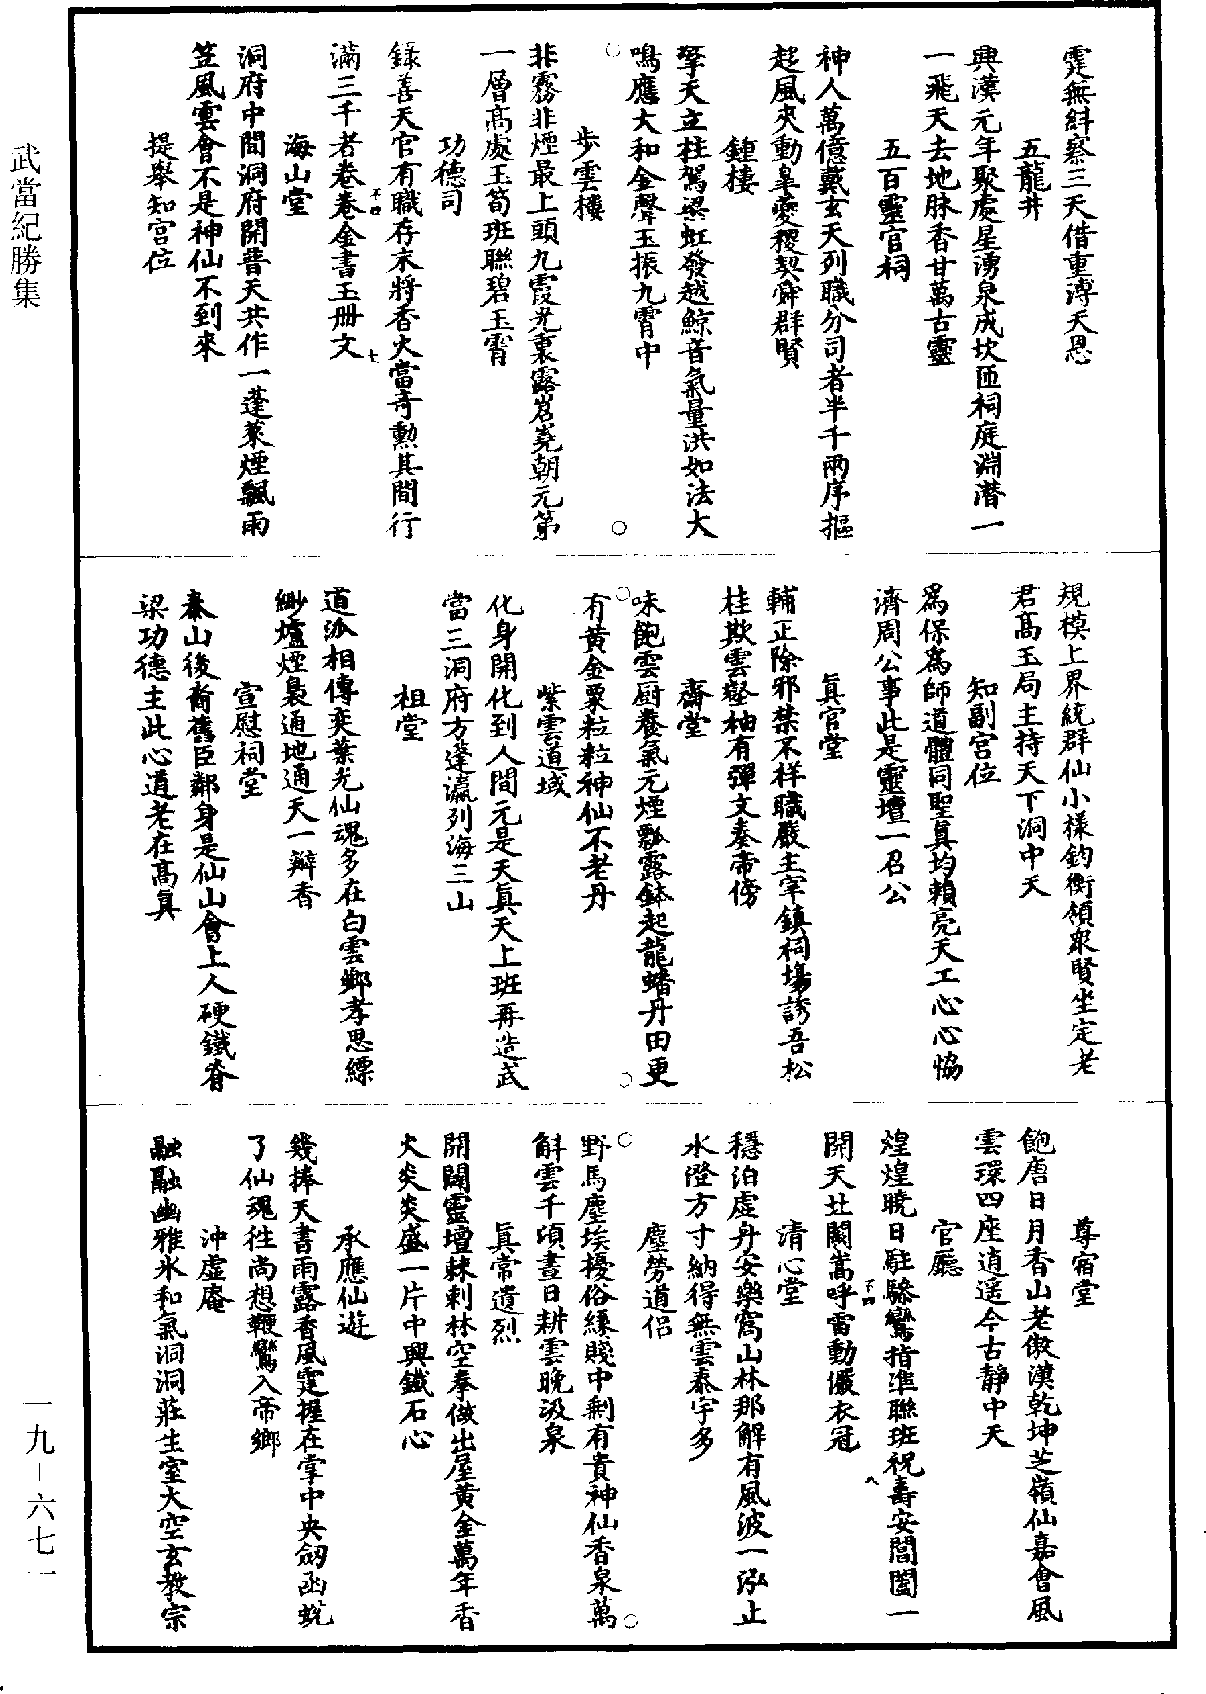 霆無斜察三天借重溥天恩
五龍井
興漢元年聚處星湧泉成坎匝祠庭淵潛一
一飛天去地脉香甘萬古靈
五百靈官祠
神人萬億戴玄天列職分司者半千兩序摳
趍風夾動臯夔稷契舜群賢
鍾樓
擎天立柱駕梁虹發越鯨音氣量洪如法大
鳴應大和金聲玉振九霄中
步雲樓
非霧非煙最上頭九霞光裏露岧嶤朝元第
一層高處玉筍班聯碧玉霄
功德司
錄善天官有職存末將香火當奇勲其間行
滿三千者卷卷金書玉冊文
海山堂
洞府中間洞府開普天共作一蓬萊煙飄雨
笠風雲會不是神仙不到來
提舉知宮位
規模上界統群仙小樣鈞衡領衆賢坐定老
君高玉局主持天下洞中天
知副宮位
爲保爲師道體同聖眞均賴亮天工心心恊
濟周公事此是靈壇一召公
眞官堂
輔正除邪禁不祥職嚴主宰鎮祠塲誇吾松
桂欺雲壑柚有彈文奏帝傍
齋堂
味飽雲厨養氣元煙瓢露鉢起龍蟠丹田更
有黃金粟粒粒神仙不老丹
紫雲道域
化身開化到人間元是天眞天上班再造武
當三洞府方蓬瀛列海三山
祖堂
道派相傳奕葉光仙魂多在白雲鄉孝思縹
緲爐煙裊通地通天一瓣香
宣慰祠堂
秦山後裔舊臣鄰身是仙山會上人硬鐵脊
梁功德主此心道老在高眞
尊宿堂
飽唐日月香山老傲漢乾坤芝嶺仙嘉會風
雲環四座逍遥今古靜中天
官廳
煌煌曉日駐驂鸞指準聯班祝壽安閶闔一
開天北闕嵩呼雷動儼衣冠
清心堂
穩泊虛丹安樂窩山林那解有風波一泓止
水澄方寸納得無雲泰宇多
塵勞道侶
野馬塵埃擾俗緣賤中剩有貴神仙香泉萬
斛雲千頃晝日耕雲晚汲泉
眞常遺烈
開闢靈壇棘刺林空拳做出屋黃金萬年香
火炎炎盛一片中興鐵石心
承應仙遊
幾捧天書雨露香風霆握在掌中央劒函蛻
了仙魂徃尚想鞭鸞入帝鄉
沖虛庵
融融幽雅氷和氣洞洞莊生室大空玄教宗
武當紀勝集
一九－六七一